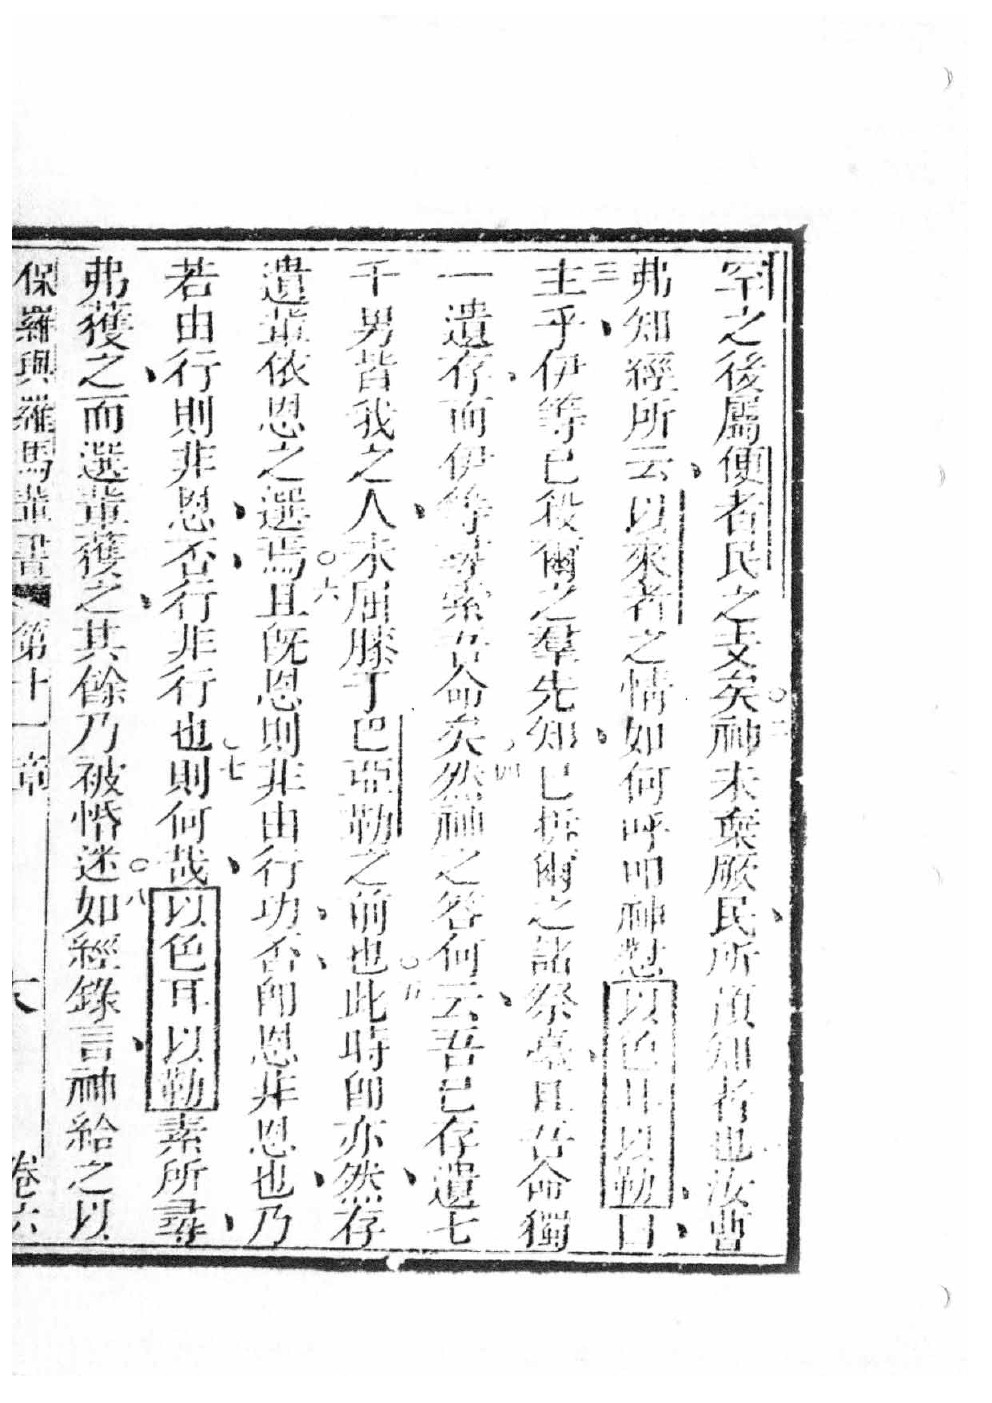 罕之後屬便者民之支矣○二神未棄厥民所預知者也汝曹
弗知經所云以來者之情如何呼叩神懟以色耳以勒曰
三主乎伊等已殺爾之羣先知已拆爾之諸祭臺且吾命獨
一遺存而伊等尋索吾命矣○四然神之答何云吾已存遺七
千男皆我之人未屈膝于巴亞勒之前也○五此時卽亦然存
遺輩依恩之選焉○六且旣恩則非由行功否卽恩非恩也乃
若由行則非恩否行非行也○七則何哉以色耳以勒素所尋
弗獲之而選輩獲之其餘乃被惛迷○八如經錄言神給之以
保羅與羅馬輩書 第十一章 六 卷六